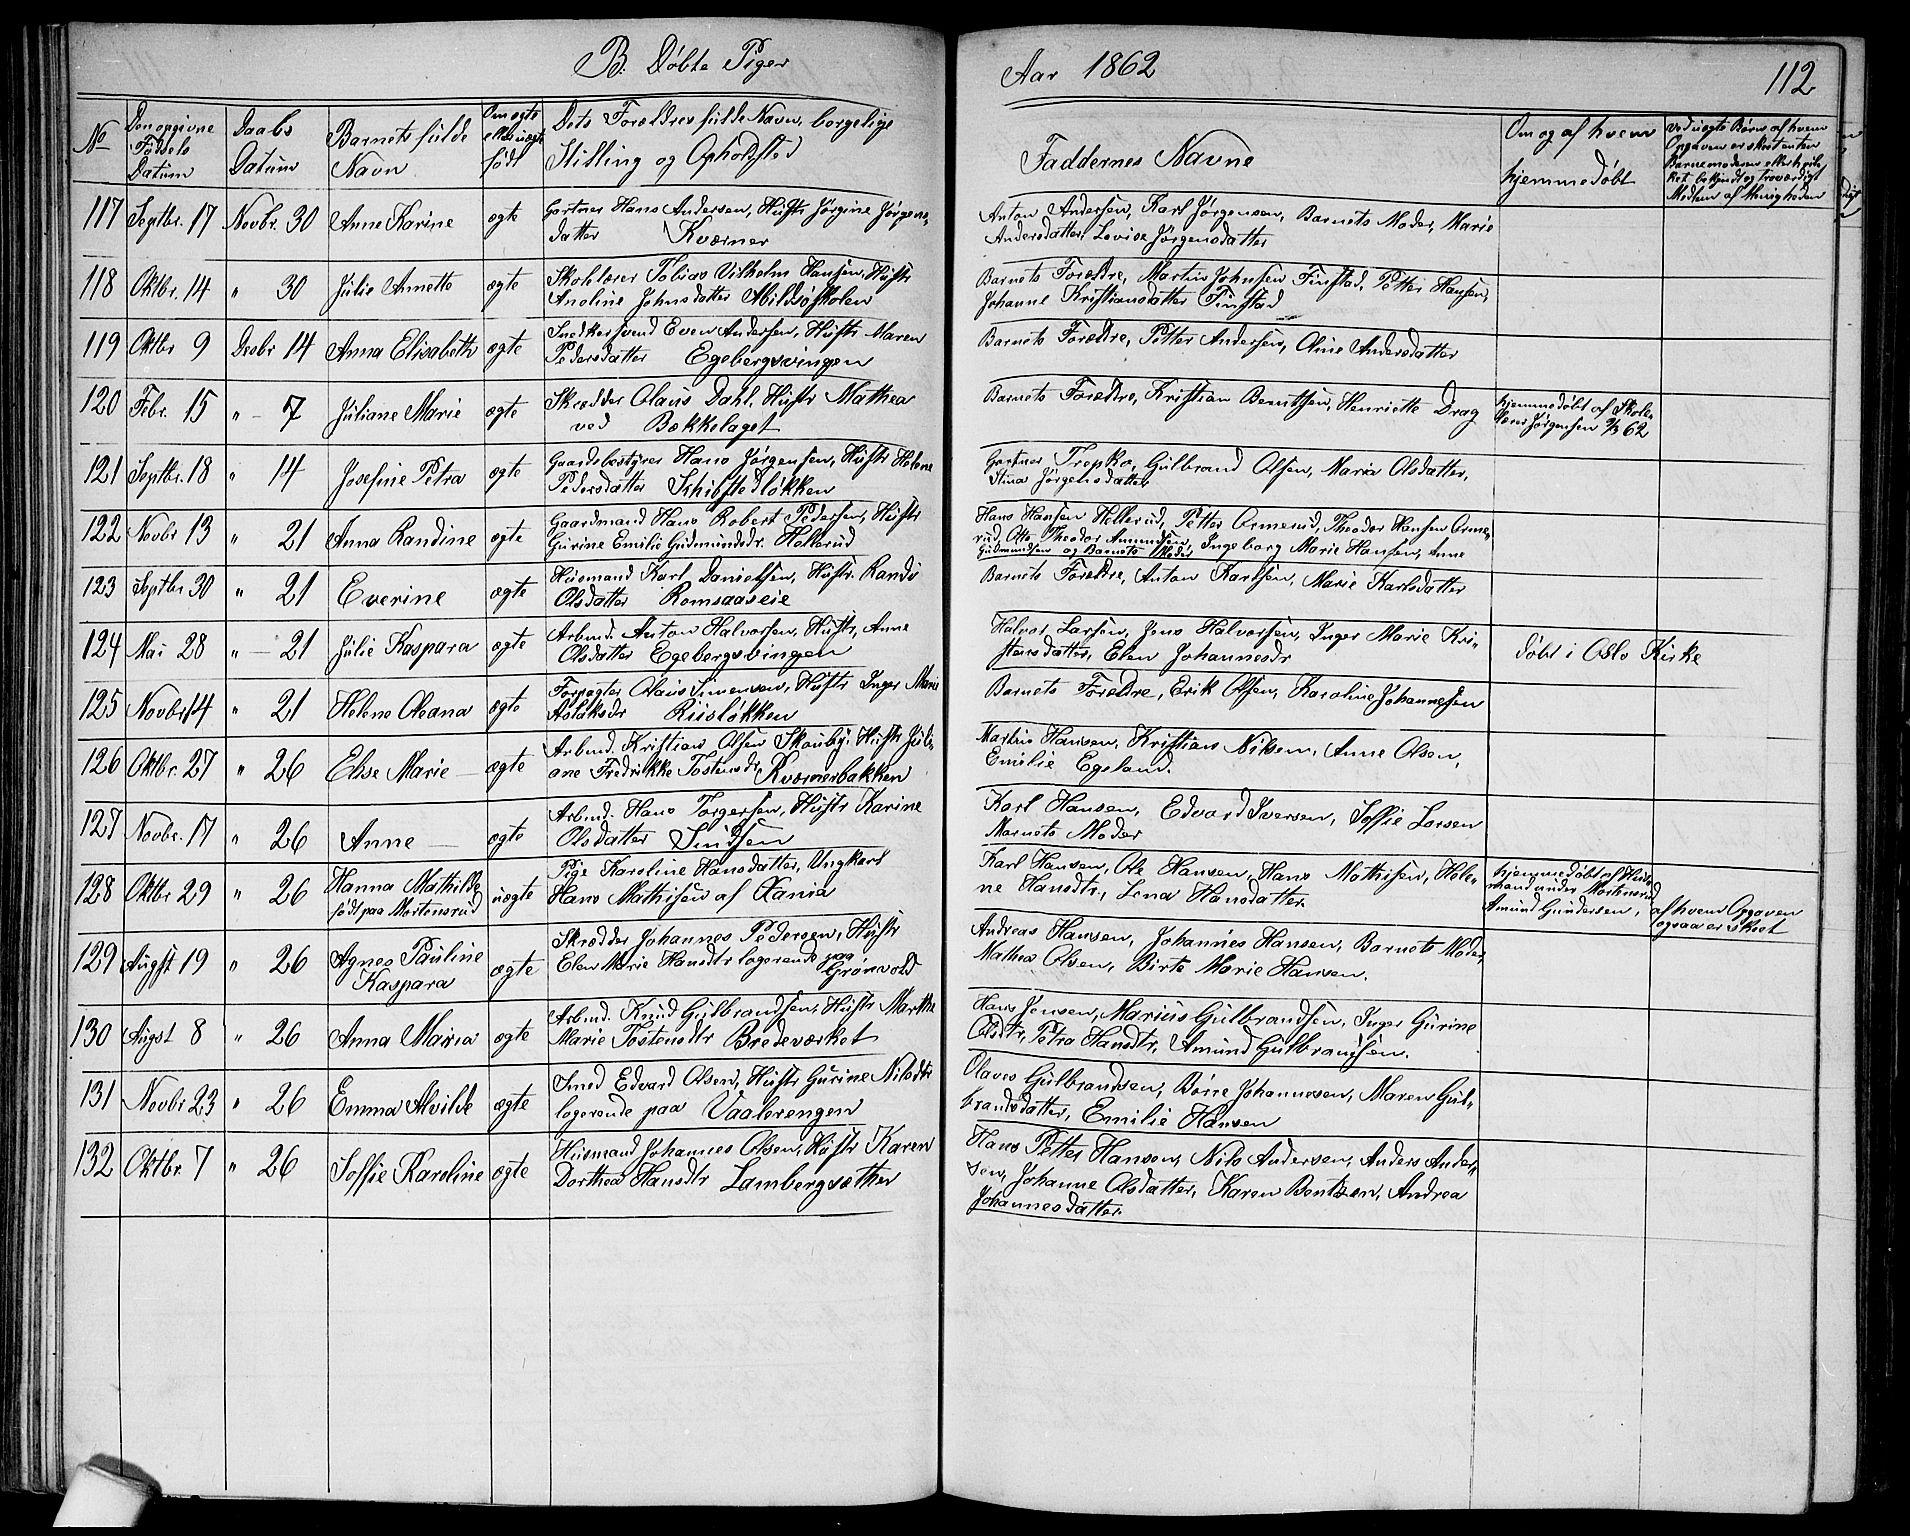 B. Døbte Piger
No
Den opgivne Fødsels Datum
Daabs Datum
Barnets fulde Navn
Om ægte eller uægte født
Dets Forældres fulde Navn, borgelige Stilling og Opholdsted
117 Septbr. 17 Novbr. 30 Anne Karine ægte Gartner Hans Andersen, Hustr Jørgine Jørgens-
datter Kværner
118 Oktbr. 14 " 30 Julie Annette ægte Skolelærer Tobias Vilhelm Hansen, Hustr
Anoline Johnsdatter Abildsøskolen
119 Oktbr 9 Desbr 14 Anna Elisabeth ægte Snedkersvend Even Andersen, Hustr Maren
Pedersdatter Egebergsvingen
120 Febr. 15 " 7 Juliane Marie ægte Skrædder Olaus Dahl, Hustr Mathea
ved Bækkelaget
121 Septbr. 18 " 14 Josefine Petra ægte Gaardsbestyrer Hans Jørgensen, Hustr Helene
Pedersdatter Schibstedløkken
122 Novbr 13 " 21 Anna Randine ægte Gaardmand Hans Robert Pedersen, Hustr
Gurine Emilie Gudmundsdr. Hellerud
123 Septbr 30 " 21 Everine ægte Husmand Karl Danielsen, Hustr. Randi
Olsdatter Romsaaseie
124 Mai 28 " 21 Julie Kaspara ægte Arbmd. Anton Halvorsen, Hustr, Anne
Olsdatter Egebergsvingen
125 Novbr 14 " 21 Helene Oleana ægte Forpagter Olaus Simensen, Hustr Inger Marie
Aslaksdr Riisløkken
126 Oktbr. 27 " 26 Elise Marie ægte Arbmd. Kristian Olsen Skouby, Hustr Juli-
ane Fredrikke Tostensdr Kværnerbakken
127 Novbr. 17 " 26 Anne ægte Arbmd. Hans Torgersen, Hustr Karine
Olsdatter Sindsen
128 Oktbr 29 " 26 Hanna Mathilde født paa Mortensrud uægte Pige Karoline Hansdatter, Ungkarl
Hans Mathisen af Xania
129 Augst 19 " 26 Agnes Pauline Kaspara ægte Skrædder Johannes Pedersen, Hustr
Elen Marie Hansdtr logerende paa Grønvold
130 Augst 8 " 26 Anna Maria ægte Arbmd. Knud Gulbrandsen, Hustr Marthe
Marie Tostensdtr Bredeværket
131 Novbr 23 " 26 Emma Alvilde ægte Smed Edvard Olsen, Hustr Gurine Nilsdtr
logerende paa Vaalerengen
132 Oktbr. 7 " 26 Soffie Karoline ægte Husmand Johannes Olsen, Hustr Karen
Dorthea Hansdtr Lambergsæther
Aar 1862
112
Faddernes Navne
Om og af hvem hjemmedøbt
Ved uægte Børn af hvem
Opgaven er skeet enten
Barnemoderen eller hvil-
ket bekjendt og troværdigt
Medlem af Menigheden
Anton Andersen, Karl Jørgensen, Barnets Moder, Marie
Andersdatter, Lovise Jørgensdatter
Barnets Forældre, Martin Johnsen Finstad, Petter Hansen,
Johanne Kristiansdatter Finstad
Barnets Forældre, Petter Andersen, Oline Andersdatter
Barnets Forældre, Kristian Berntsen, Henriette Drag
hjemmedøbt af Skole-
lærer Jørgensen 2/3 62
Gartner Trepka, Gulbrand Olsen, Maria Olsdatter,
Stina Jørgensdatter
Hans Hansen Hellerud, Petter Ormerud, Theodor Hansen Orme-
rud, Otto Theodor Amundsen, Ingeborg Marie Hansen, Anne
Gudmundsen og Barnets Moder
Barnets Forældre, Anton Karlsen, Marie Karlsdatter
Halvor Larsen, Jens Halvorsen, Inger Marie Kri-
stensdatter, Elen Johannesdr
døbt i Oslo Kirke
Barnets Forældre, Erik Olsen, Karoline Johannesen
Martin Hansen, Kristian Nilsen, Anne Olsen,
Emilie Egeland.
Karl Hansen, Edvard Iversen, Soffie Larsen
Barnets Moder
Karl Hansen, Ole Hansen, Hans Mathisen, Hele-
ne Hansdtr, Lena Hansdatter.
hjemmedøbt af Hus-
mand under Mortensrud
Amund Gundersen, af hvem Opgaven
ogsaa er skeet
Andreas Hansen, Johannes Hansen, Barnets Moder,
Mathea Olsen, Birte Marie Hansen.
Hans Jensen, Marius Gulbrandsen, Inger Gurine
Olsdtr, Petra Hansdtr, Amund Gulbrandsen.
Olaves Gulbrandsen, Børre Johannesen, Maren Gul-
brandsdatter, Emilie Hansen
Hans Petter Hansen, Nils Andersen, Anders Ander-
sen, Johanne Olsdatter, Karen Bentsen, Andrea
Johannesdatter.